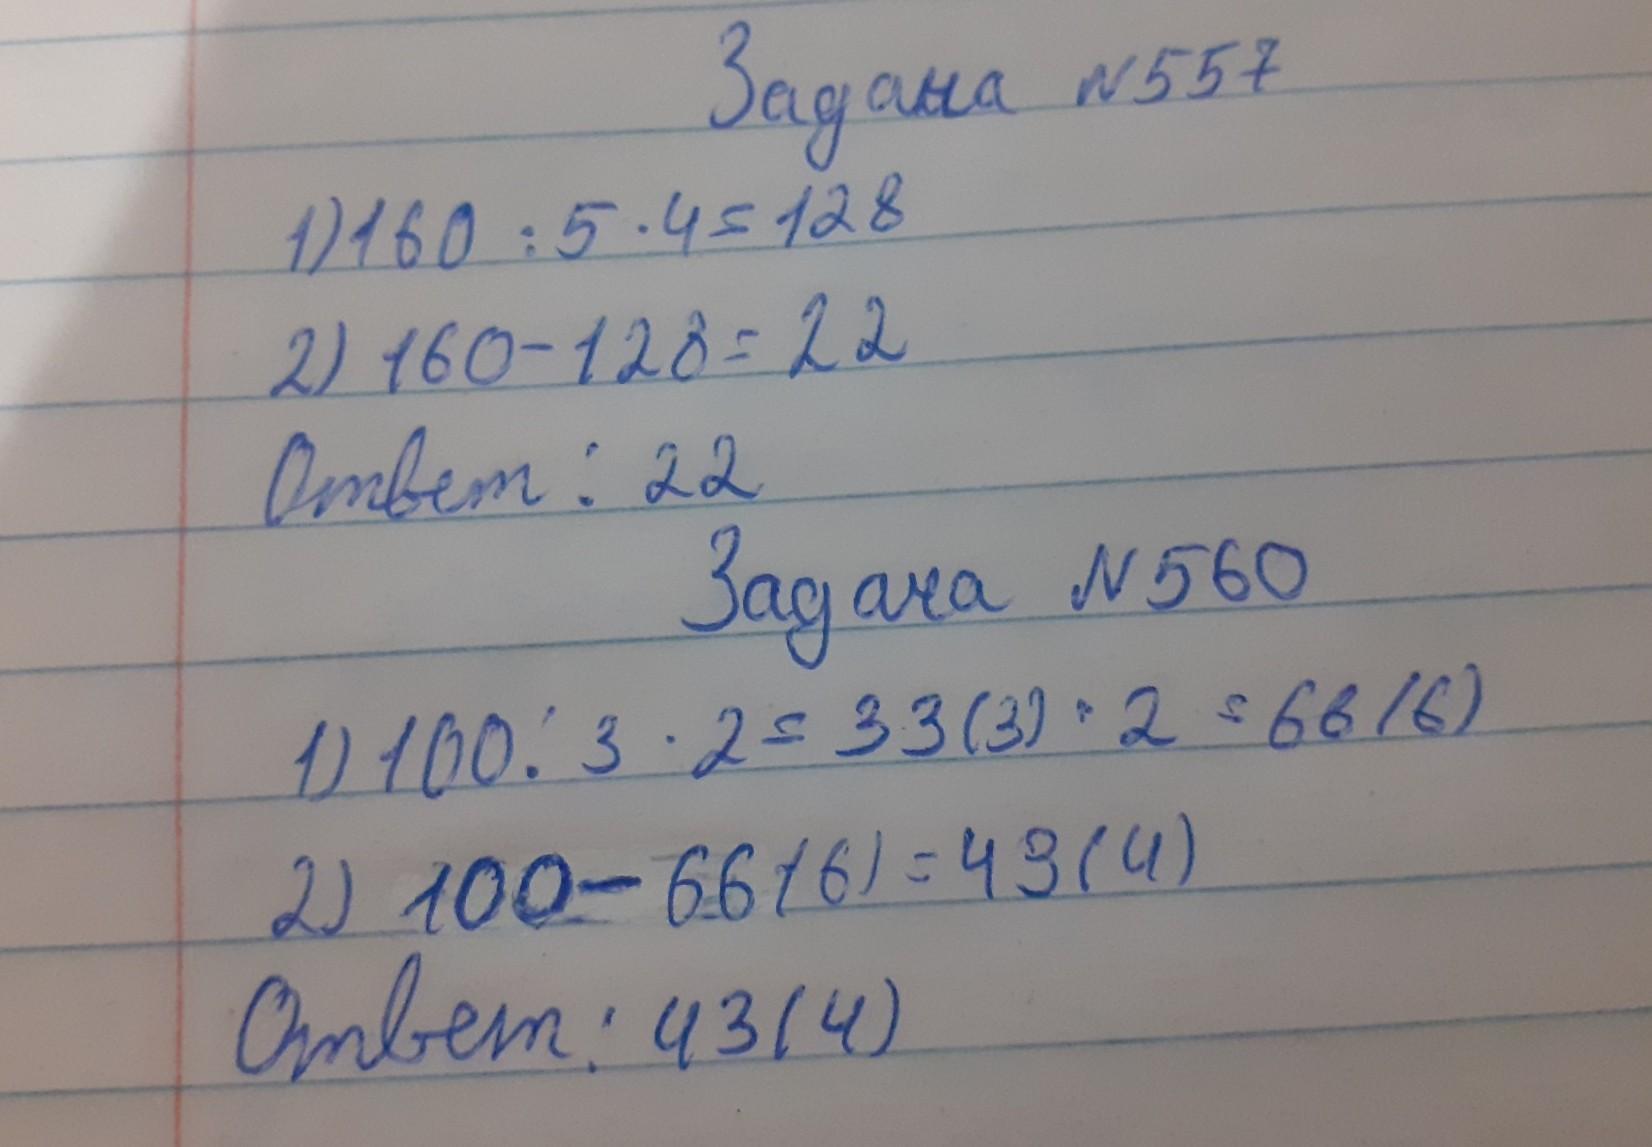 Задача N557
1) 160 : 5 · 4 = 128
2) 160 - 128 = 22
Ответ : 22
Задача N560
1) 100 : 3 · 2 = 33(3) · 2 = 66(6)
2) 100 - 66(6) = 43(4)
Ответ : 43(4)